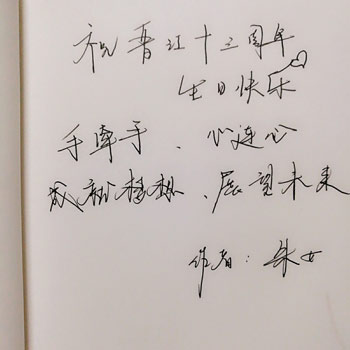 祝晋江十三周年
生日快乐
手牵手、心连心
成就梦想、展望未来
作者：朱女